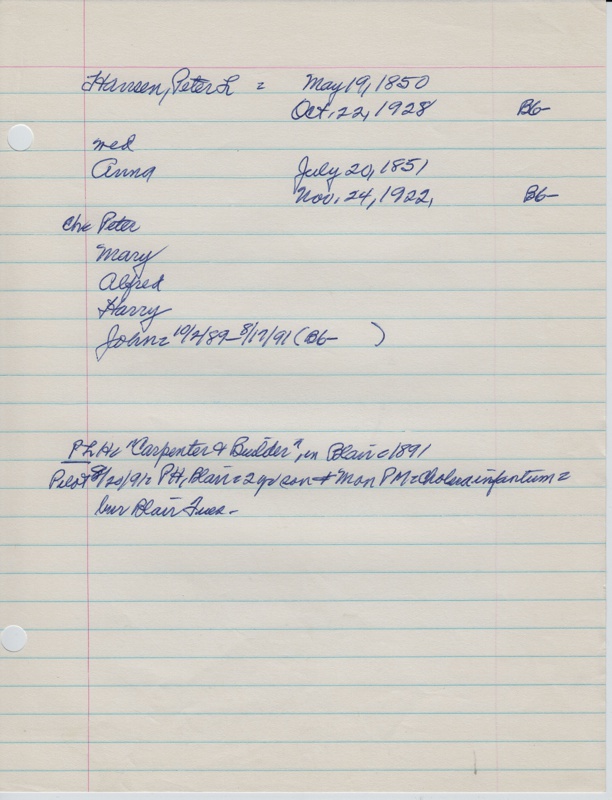 Hansen, Peter L = May 19, 1850
Oct. 22, 1928 B6-
wed
Anna July 20, 1851
Nov. 24, 1922, B6-
Ch: Peter
Mary
Alfred
Harry
John = 10/2/89-8/17/91 (B6- )
P L H = "Carpenter & Builder", in Blair = 1891
Pilot 8/20/91 = PH, Blair = 2 yr son + Mon PM = Cholera infantum =
bur Blair Tues-